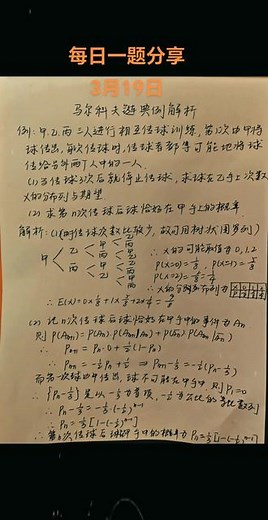 每日一题分享
3月19日
马尔科夫链典例解析
例:甲.乙.丙三人进行相互传球训练,第1次由甲将
球传出,每次传球时,传球者都等可能地将球
传给另外两个人中的一人.
(1)若传球3次后就停止传球,求球在乙手上次数
X的分布列与期望.
(2)求第n次传球后球恰好在甲手上的概率.
解析:(1)(因传球次数比较少,故可用树状图罗列)
甲 乙 丙 甲 丙 甲 乙
∴X的可能取值为0,1,2
P(X=0)=1/8, P(X=1)=5/8
P(X=2)=2/8=1/4
∴X的分布列为
∴E(X)=0×1/8+1×5/8+2×1/4=9/8
(2)记n次传球后球恰好在甲手中的事件为An
则P(An+1)=P(An)·P(An+1|An)+P(Ān)P(An+1|Ān)
∴Pn+1=Pn·0+1/2(1-Pn)
∴Pn+1=-1/2Pn+1/2 ⇒ Pn+1-1/3=-1/2(Pn-1/3)
而第一次球由甲传出,球不可能在甲手中,则P1=0
∴{Pn-1/3}是以-1/3为首项,-1/2为公比的等比数列
∴Pn-1/3=-1/3·(-1/2)^(n-1)
∴Pn=1/3[1-(-1/2)^(n-1)]
∴第n次传球后球在甲手中的概率为Pn=1/3[1-(-1/2)^(n-1)]